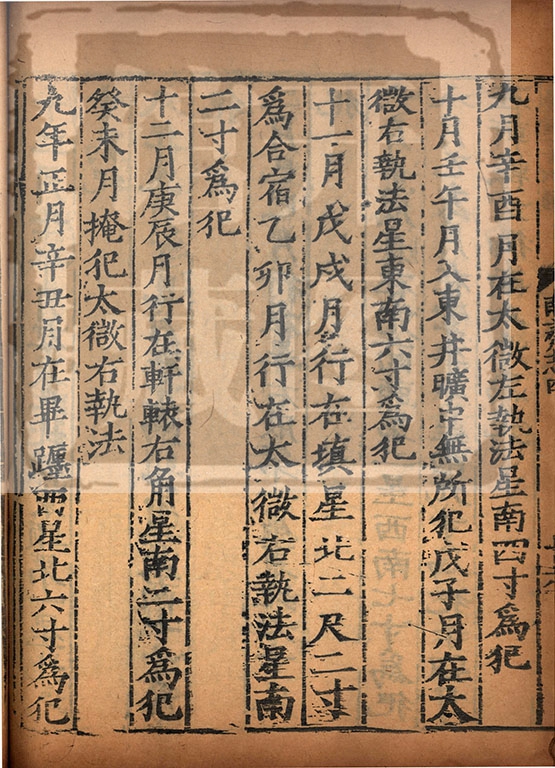 九月辛酉月在太微左執法星南四寸爲犯
十月壬午月入東井曠中無所犯戊子月在太
微右執法星東南六寸爲犯
十一月戊戌月行在填星北二尺二寸
爲合宿乙卯月行在太微右執法星南
二寸爲犯
十二月庚辰月行在軒轅右角星南二寸爲犯
癸未月掩犯太微右執法
九年正月辛丑月在畢躔西星北六寸爲犯